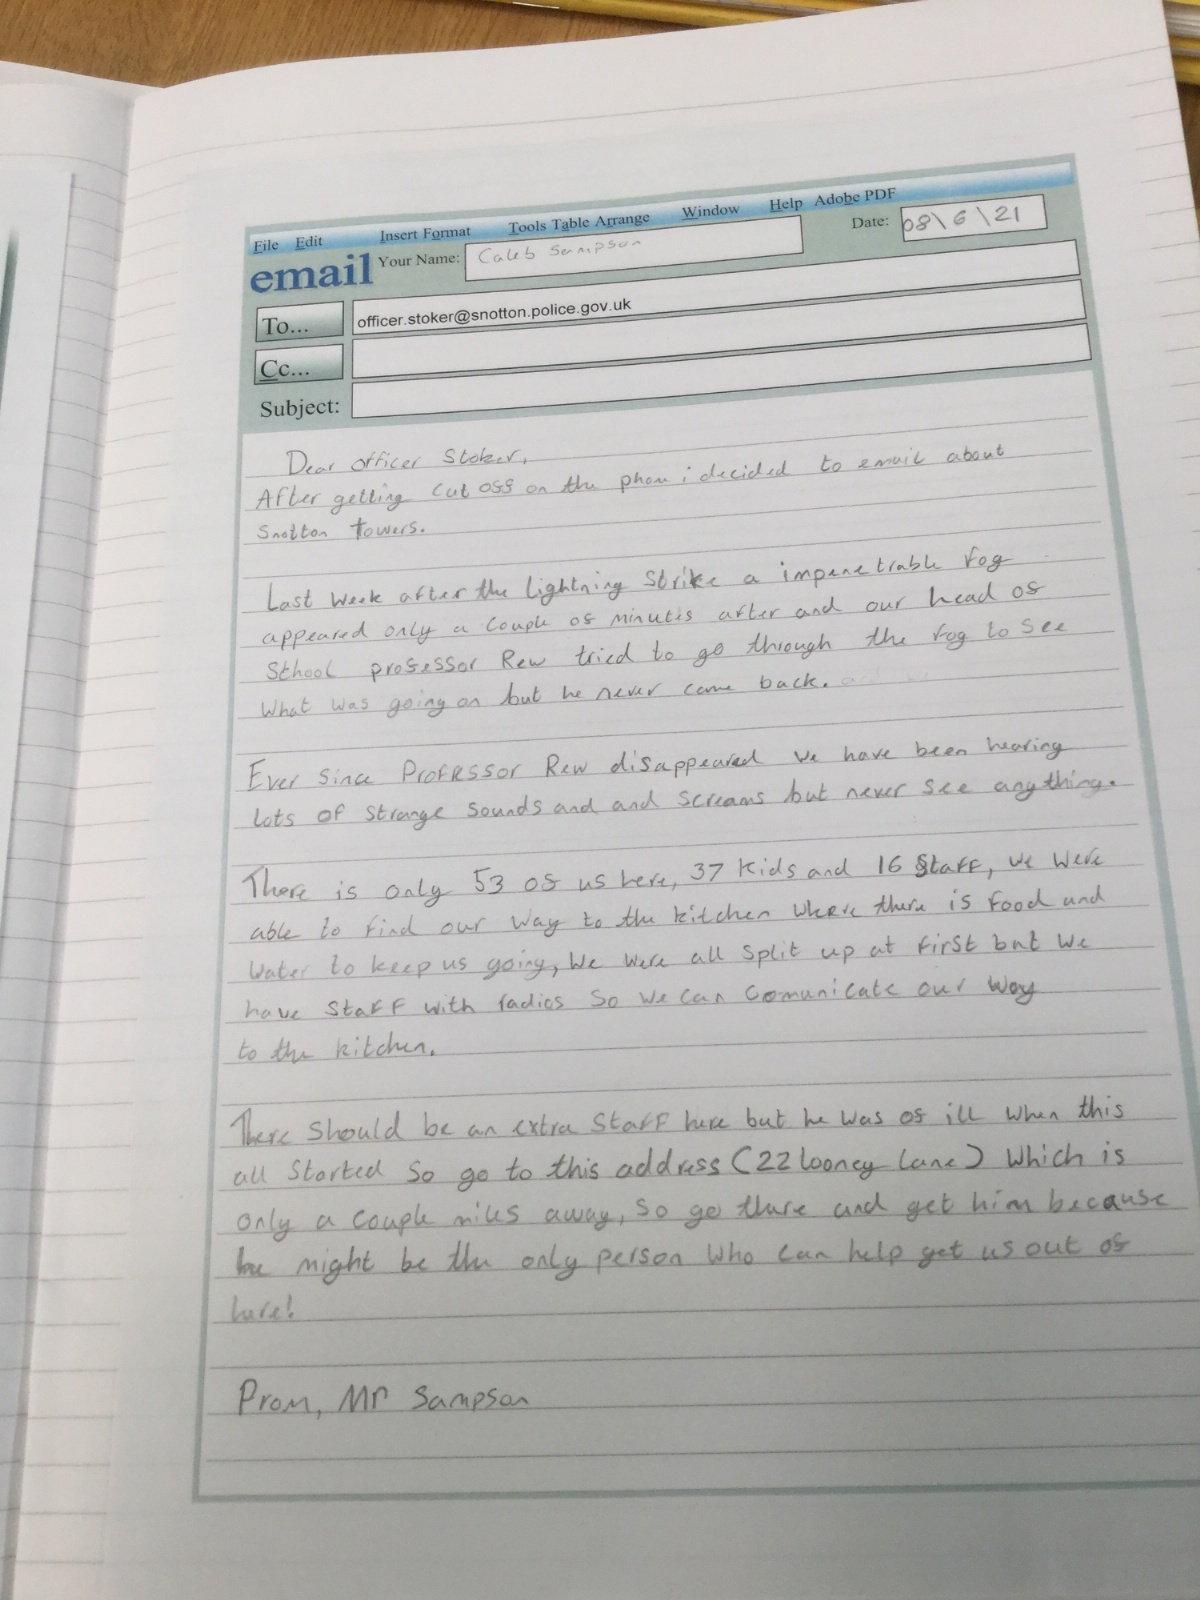 File Edit Insert Format Tools Table Arrange Window Help Adobe PDF
email Your Name: Caleb Sampson Date: 08\6\21
To... officer.stoker@snotton.police.gov.uk
Cc...
Subject:
Dear officer Stoker,
After getting cut off on the phone i decided to email about
Snotton Towers.
Last week after the lightning strike a impenetrable fog
appeared only a couple of minutes after and our head of
School professor Rew tried to go through the fog to see
what was going on but he never came back.
Ever since Professor Rew disappeared we have been hearing
lots of strange sounds and and screams but never see anything.
There is only 53 of us here, 37 kids and 16 staff, we were
able to find our way to the kitchen where there is food and
water to keep us going, we were all split up at first but we
have staff with radios so we can comunicate our way
to the kitchen.
There should be an extra staff here but he was of ill when this
all started so go to this address (22 looney lane) which is
only a couple miles away, so go there and get him because
he might be the only person who can help get us out of
here!
From, Mr Sampson